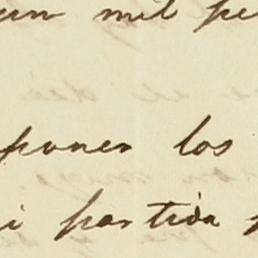 un mil pe
ponen los
i partida p